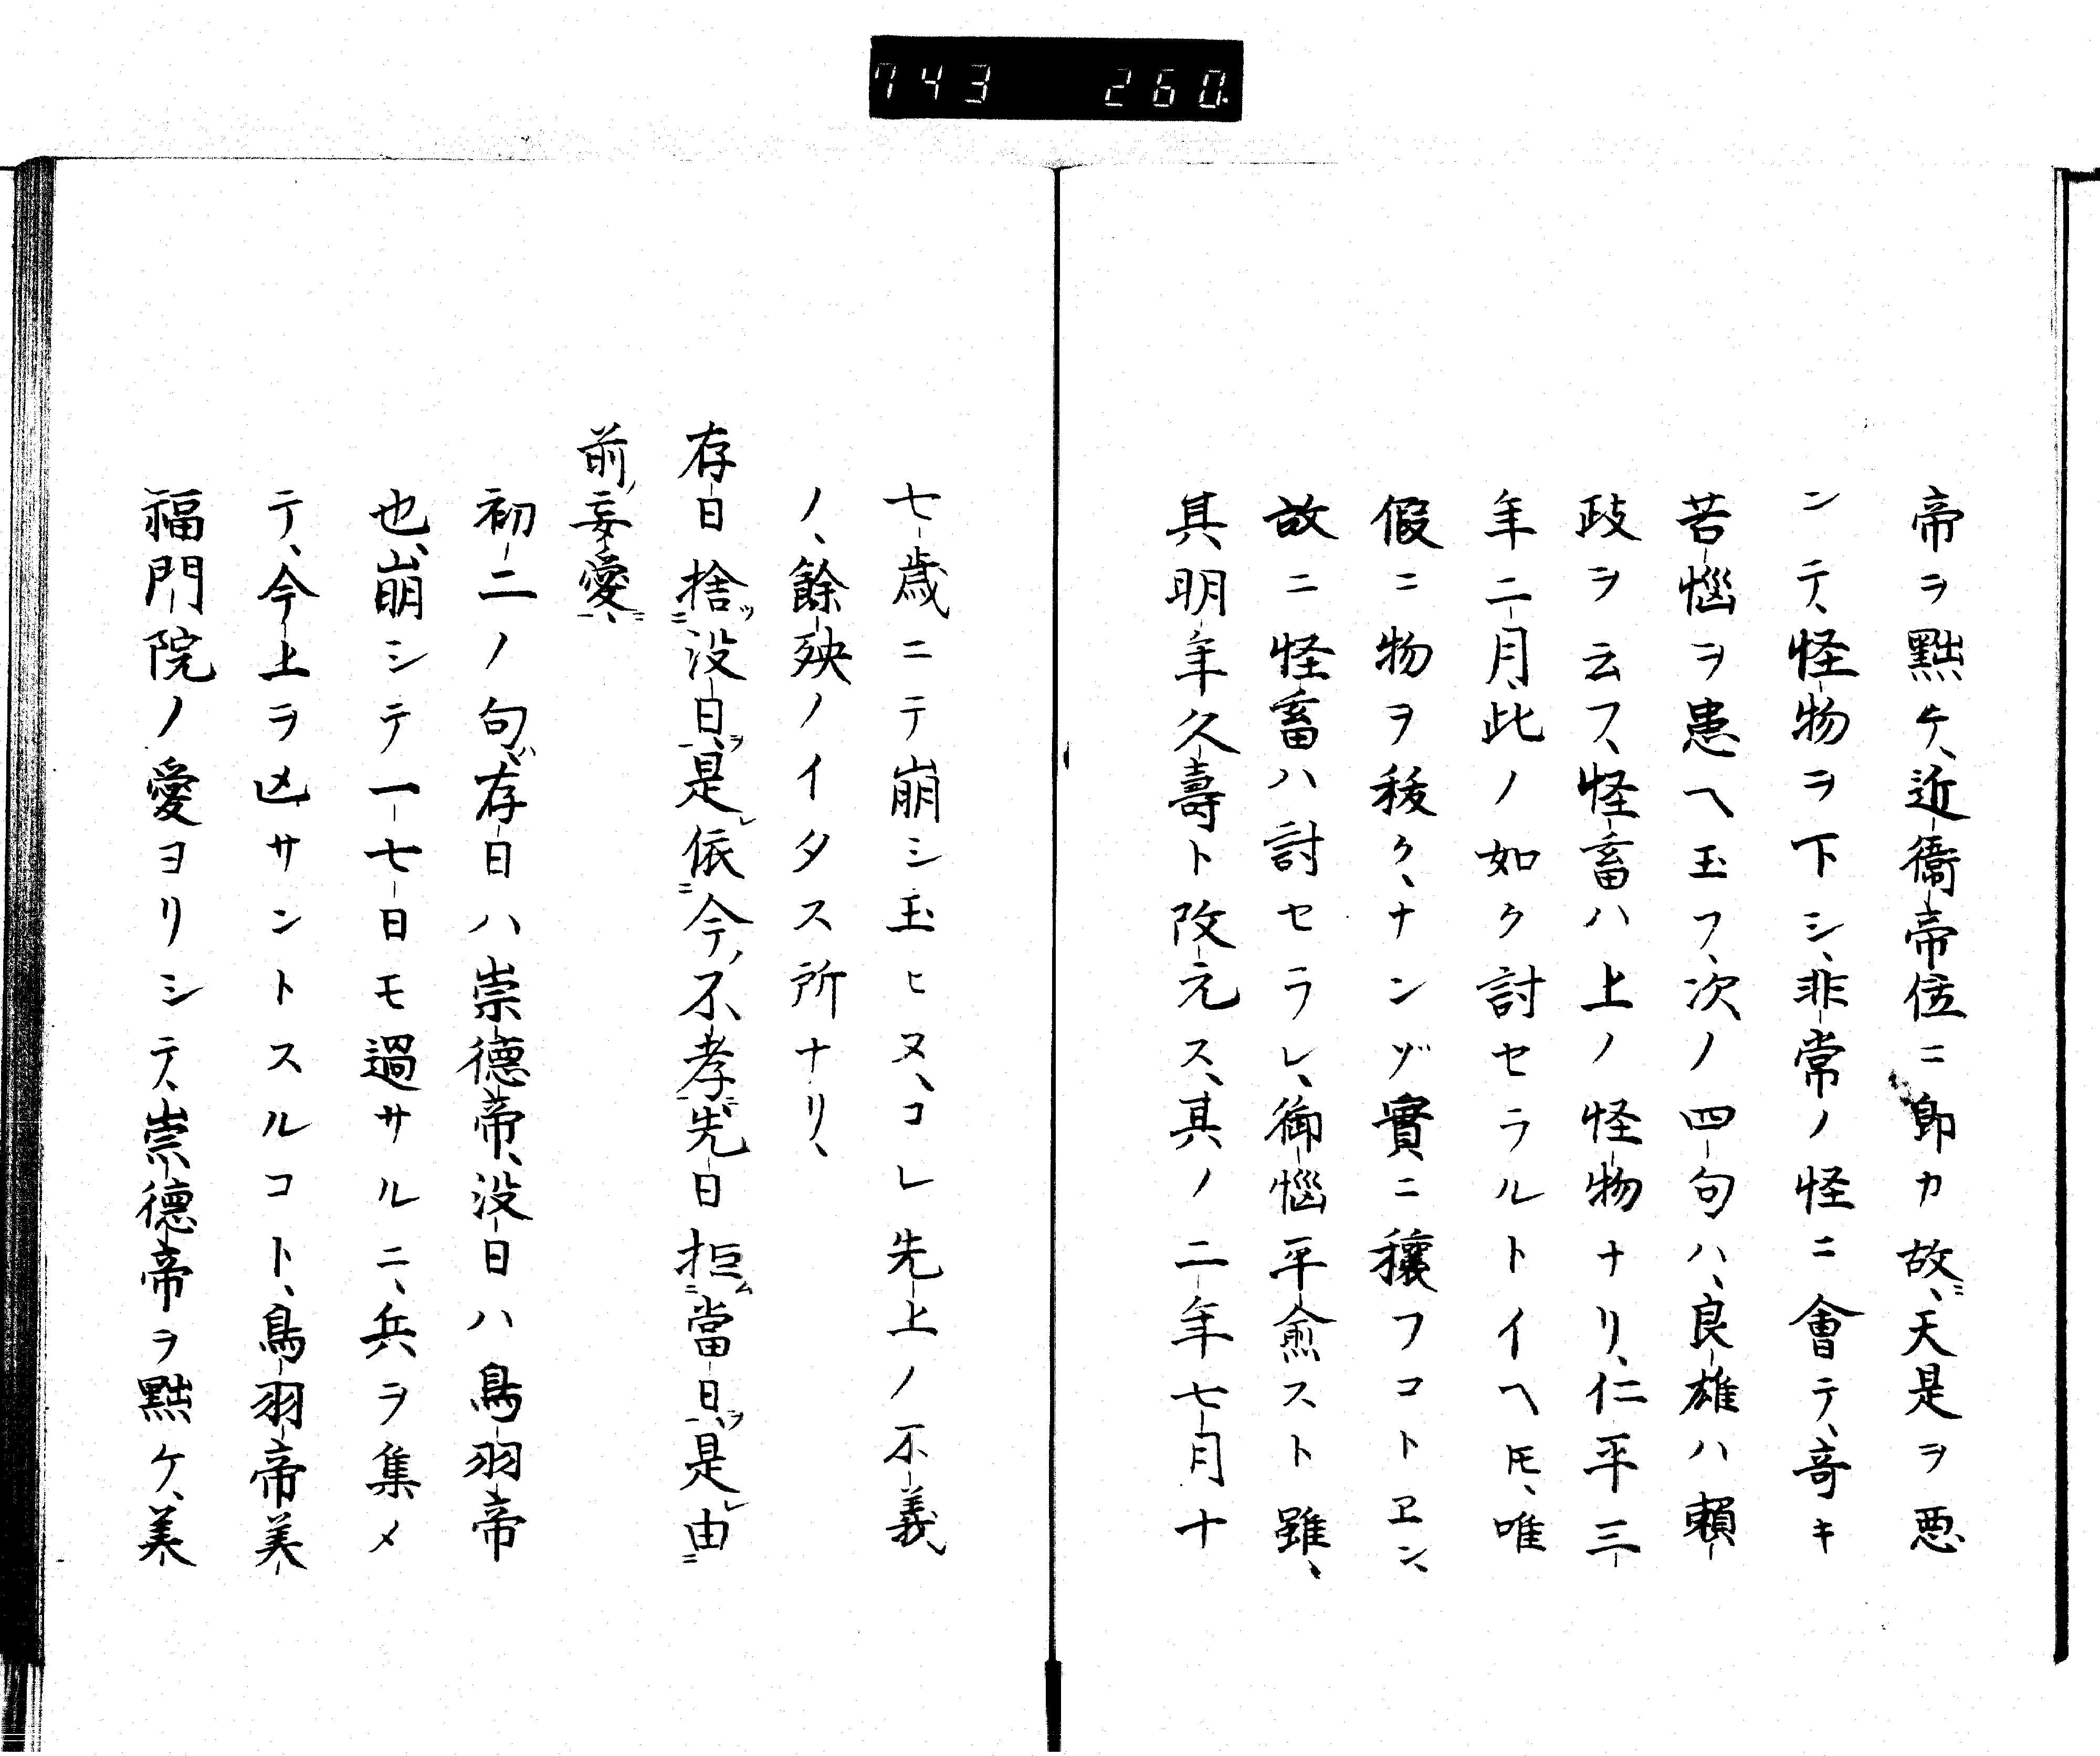 743 260
帝ヲ黜ケ、近衞帝位ニ卽カ故ニ、天是ヲ悪
ンテ、怪物ヲ下シ、非常ノ怪ニ會テ、奇キ
苦惱ヲ患ヘ玉フ、次ノ四句ハ、良雄ハ賴
政ヲ云フ、怪畜ハ上ノ怪物ナリ、仁平三
年二月、此ノ如ク討セラルトイヘ𪜈、唯
假ニ物ヲ秡ク、ナンゾ實ニ穰フコトヱン、
故ニ怪畜ハ討セラレ、御惱平愈スト雖、
其明年久壽ト改元ス、其ノ二年七月十
七歳ニテ崩シ玉ヒヌ、コレ先上ノ不義
ノ、餘殃ノイタス所ナリ、
存日捨ツニ没日ヲ、是レ依ニ今ノ不孝ニ、先日拒ムニ當日ヲ、是レ由ニ
前ノ妄愛ニ、
初二ノ句、存日ハ崇德帝、没日ハ鳥羽帝
也、崩シテ一七日モ過サルニ、兵ヲ集メ
テ、今上ヲ凶サントスルコト、鳥羽帝美
福門院ノ愛ヨリシテ、崇德帝ヲ黜ケ、美